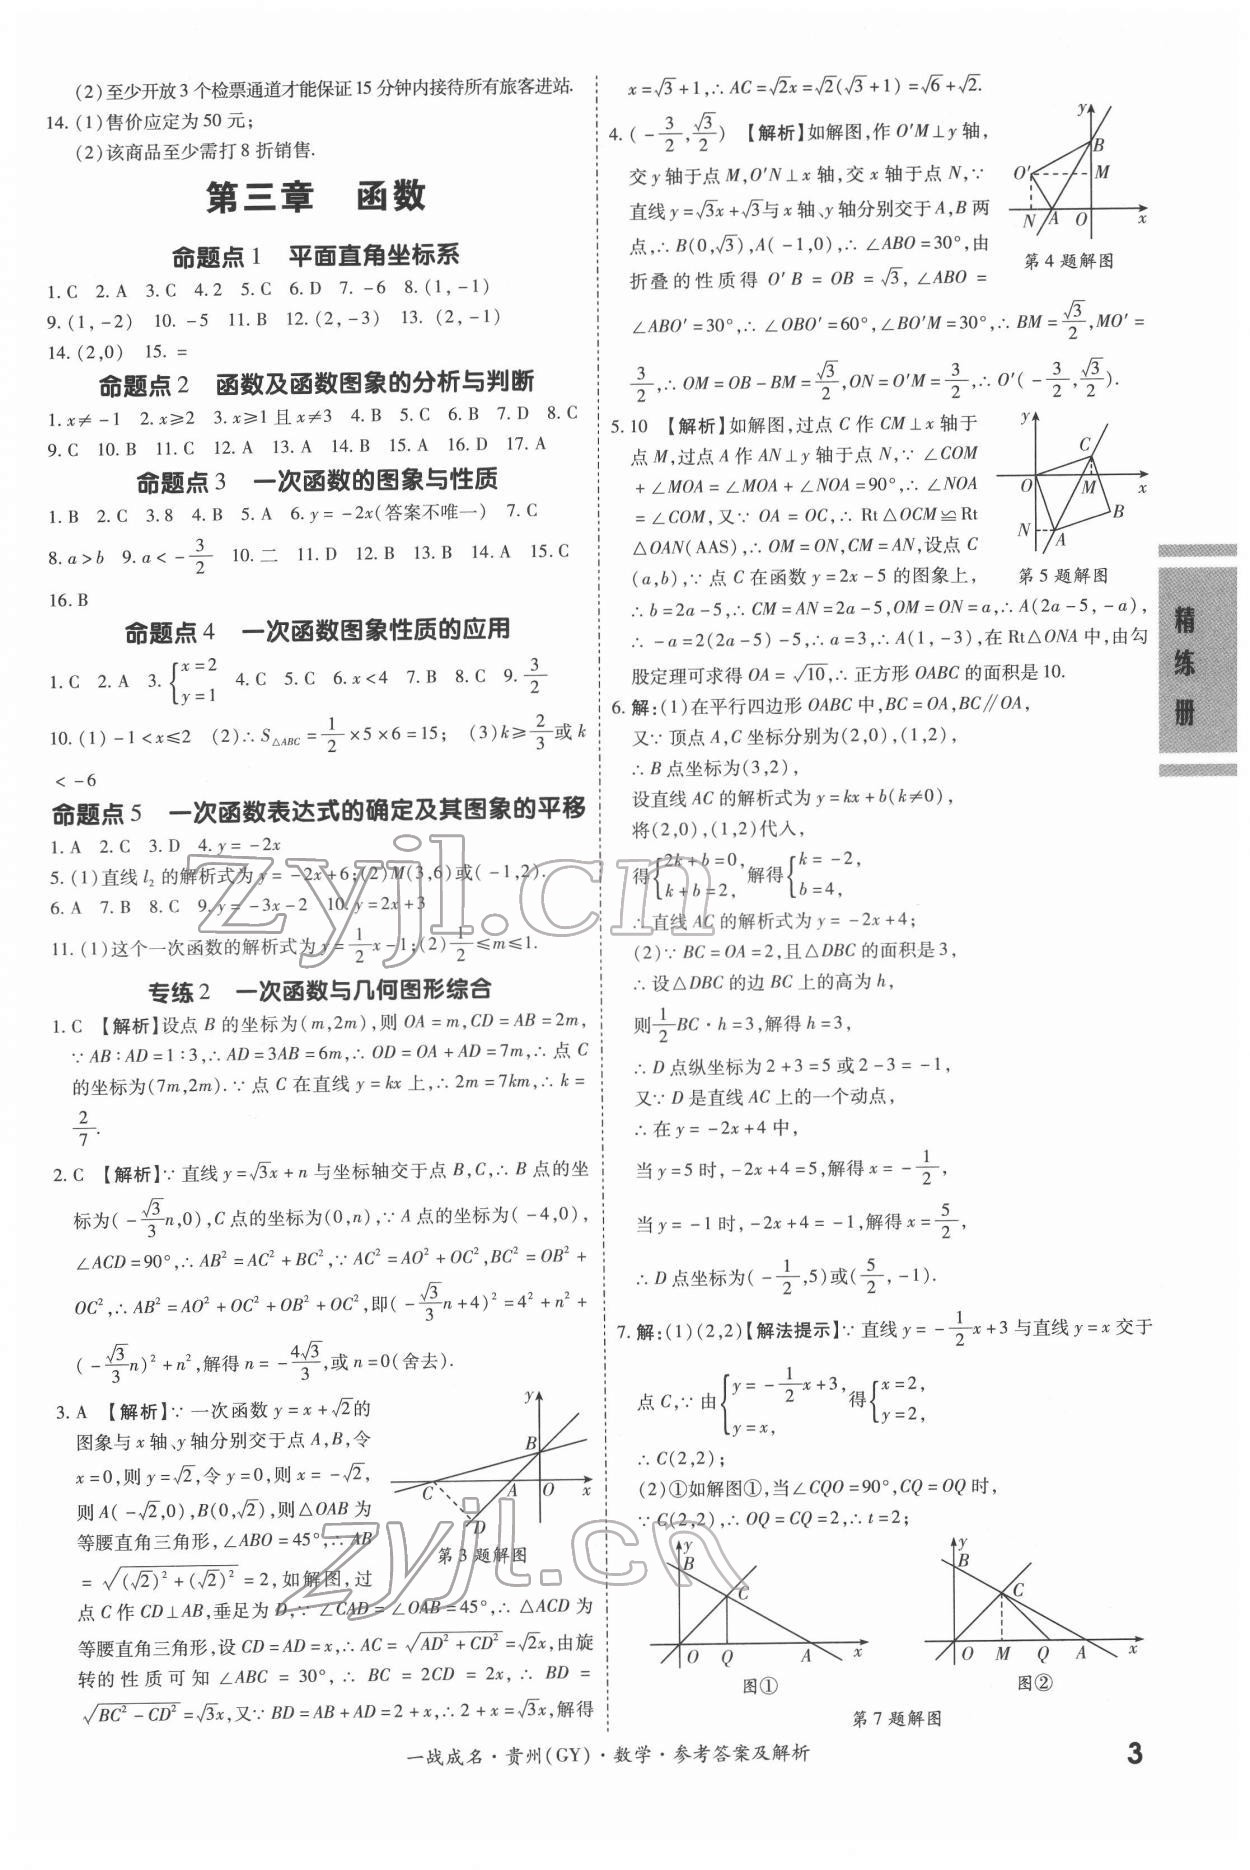 (2)至少开放3个检票通道才能保证15分钟内接待所有旅客进站.
14.(1)售价应定为50元;
(2)该商品至少需打8折销售.
第三章 函数
命题点1 平面直角坐标系
1.C 2.A 3.C 4.2 5.C 6.D 7.-6 8.(1,-1)
9.(1,-2) 10.-5 11.B 12.(2,-3) 13.(2,-1)
14.(2,0) 15.=
命题点2 函数及函数图象的分析与判断
1.x≠-1 2.x≥2 3.x≥1且x≠3 4.B 5.C 6.B 7.D 8.C
9.C 10.B 11.C 12.A 13.A 14.B 15.A 16.D 17.A
命题点3 一次函数的图象与性质
1.B 2.C 3.8 4.B 5.A 6.y=-2x(答案不唯一) 7.C
8.a>b 9.a<-3/2 10.二 11.D 12.B 13.B 14.A 15.C
16.B
命题点4 一次函数图象性质的应用
1.C 2.A 3.{x=2 y=1 4.C 5.C 6.x<4 7.B 8.C 9.3/2
10.(1)-1<x≤2 (2)∴S△ABC=1/2×5×6=15; (3)k≥2/3或k
<-6
命题点5 一次函数表达式的确定及其图象的平移
1.A 2.C 3.D 4.y=-2x
5.(1)直线l₂的解析式为y=-2x+6;(2)M(3,6)或(-1,2).
6.A 7.B 8.C 9.y=-3x-2 10.y=2x+3
11.(1)这个一次函数的解析式为y=1/2x-1;(2)1/2≤m≤1.
专练2 一次函数与几何图形综合
1.C 【解析】设点B的坐标为(m,2m),则OA=m,CD=AB=2m,
∵AB∶AD=1∶3,∴AD=3AB=6m,∴OD=OA+AD=7m,∴点C
的坐标为(7m,2m).∵点C在直线y=kx上,∴2m=7km,∴k=
2/7.
2.C 【解析】∵直线y=√3x+n与坐标轴交于点B,C,∴B点的坐
标为(-√3/3n,0),C点的坐标为(0,n),∵A点的坐标为(-4,0),
∠ACD=90°,∴AB²=AC²+BC²,∵AC²=AO²+OC²,BC²=OB²+
OC²,∴AB²=AO²+OC²+OB²+OC²,即(-√3/3n+4)²=4²+n²+
(-√3/3n)²+n²,解得n=-4√3/3,或n=0(舍去).
3.A 【解析】∵一次函数y=x+√2的
图象与x轴、y轴分别交于点A,B,令
x=0,则y=√2,令y=0,则x=-√2,
则A(-√2,0),B(0,√2),则△OAB为
等腰直角三角形,∠ABO=45°,∴AB
=√((√2)²+(√2)²)=2,如解图,过
点C作CD⊥AB,垂足为D,∵∠CAD=∠OAB=45°,∴△ACD为
等腰直角三角形,设CD=AD=x,∴AC=√(AD²+CD²)=√2x,由旋
转的性质可知∠ABC=30°,∴BC=2CD=2x,∴BD=
√(BC²-CD²)=√3x,又∵BD=AB+AD=2+x,∴2+x=√3x,解得
y B C A O x D
第3题解图
x=√3+1,∴AC=√2x=√2(√3+1)=√6+√2.
4.(-3/2,√3/2) 【解析】如解图,作O'M⊥y轴,
交y轴于点M,O'N⊥x轴,交x轴于点N,∵
直线y=√3x+√3与x轴、y轴分别交于A,B两
点,∴B(0,√3),A(-1,0),∴∠ABO=30°,由
折叠的性质得O'B=OB=√3,∠ABO=
∠ABO'=30°,∴∠OBO'=60°,∠BO'M=30°,∴BM=√3/2,MO'=
3/2,∴OM=OB-BM=√3/2,ON=O'M=3/2,∴O'(-3/2,√3/2).
y B O' M N A O x
第4题解图
5.10 【解析】如解图,过点C作CM⊥x轴于
点M,过点A作AN⊥y轴于点N,∵∠COM
+∠MOA=∠MOA+∠NOA=90°,∴∠NOA
=∠COM,又∵OA=OC,∴Rt△OCM≌Rt
△OAN(AAS),∴OM=ON,CM=AN,设点C
(a,b),∵点C在函数y=2x-5的图象上,
y C O M x N A B
第5题解图
∴b=2a-5,∴CM=AN=2a-5,OM=ON=a,∴A(2a-5,-a),
∴-a=2(2a-5)-5,∴a=3,∴A(1,-3),在Rt△ONA中,由勾
股定理可求得OA=√10,∴正方形OABC的面积是10.
6.解:(1)在平行四边形OABC中,BC=OA,BC∥OA,
又∵顶点A,C坐标分别为(2,0),(1,2),
∴B点坐标为(3,2),
设直线AC的解析式为y=kx+b(k≠0),
将(2,0),(1,2)代入,
得{2k+b=0, k+b=2, 解得{k=-2, b=4,
∴直线AC的解析式为y=-2x+4;
(2)∵BC=OA=2,且△DBC的面积是3,
∴设△DBC的边BC上的高为h,
则1/2BC·h=3,解得h=3,
∴D点纵坐标为2+3=5或2-3=-1,
又∵D是直线AC上的一个动点,
∴在y=-2x+4中,
当y=5时,-2x+4=5,解得x=-1/2,
当y=-1时,-2x+4=-1,解得x=5/2,
∴D点坐标为(-1/2,5)或(5/2,-1).
7.解:(1)(2,2)【解法提示】∵直线y=-1/2x+3与直线y=x交于
点C,∵由{y=-1/2x+3, y=x, 得{x=2, y=2,
∴C(2,2);
(2)①如解图①,当∠CQO=90°,CQ=OQ时,
∵C(2,2),∴OQ=CQ=2,∴t=2;
y B C O Q A x
图①
y B C O M Q A x
图②
第7题解图
精练册
zyjl.cn
zyjl.cn
一战成名·贵州(GY)·数学·参考答案及解析
3